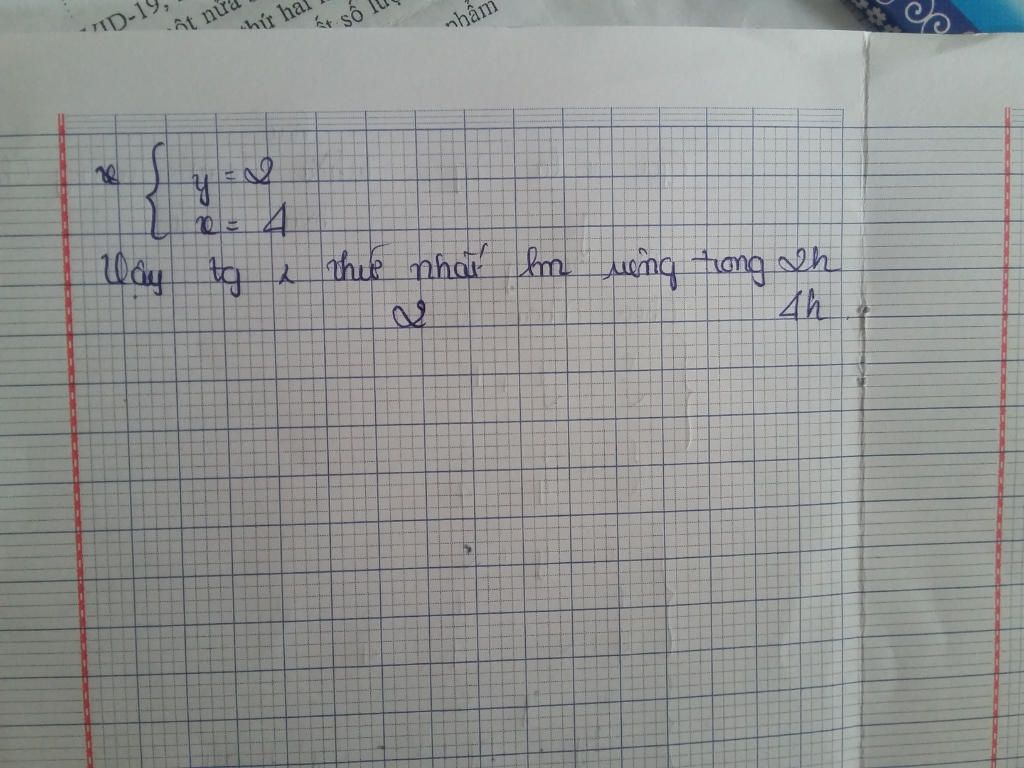 VID-19,
một nửa
thứ hai
ết số lượ
nhẩm
x { y = 2
x = 4
Vậy tg 1 thứ nhất lm riêng trong 2h
2 4h